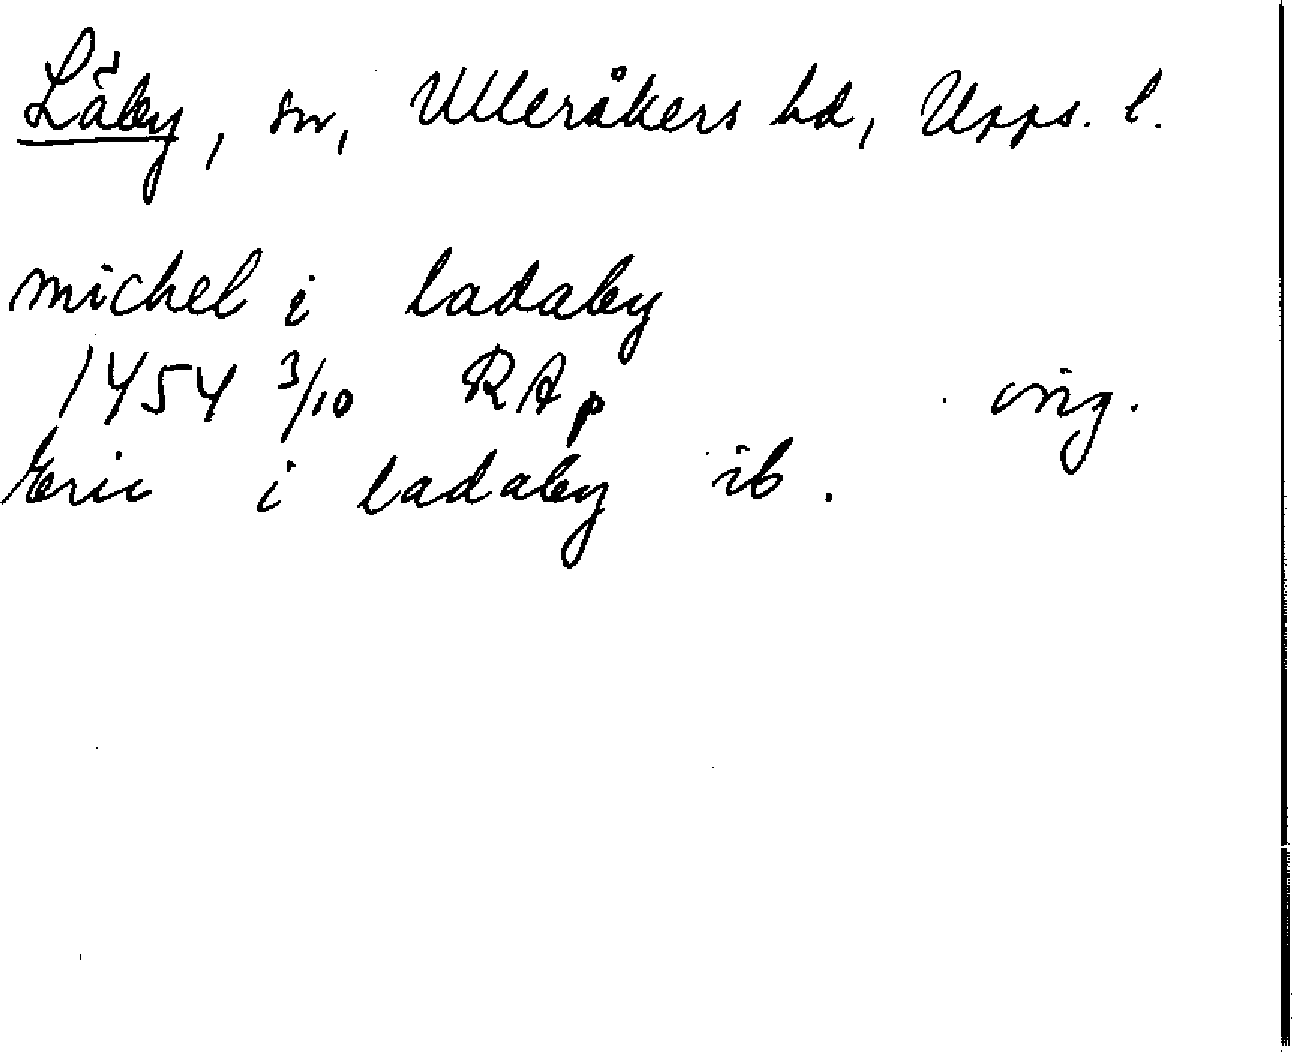 Läby, sn, Ulleråkers hd, Upps. l.
michel i ladaby
1454 3/10 RAp orig.
Eric i ladaby ib.